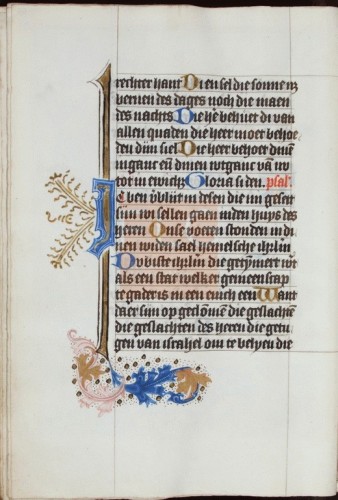 rechter hant Dien sel die sonne n
bernen des dages noch die maen
des nachts Die he behuet di van
allen quaden die heer moet behoe
den dijn siel Die heer behoet dinen
inganc en dinen wtganc van nv
tot in ewich Gloria si den. psal
Ic ben verblijt in desen die mi geseit
sijn wi sellen gaen in den huys des
heren Onse voeten stonden in di
nen yoden sael
als een stat welker gemeenscap
te gader is in een euich een Want
daer sijn op geclommen die geslachte
die geslachten des heren die getu
gen van israhel om te belyen die